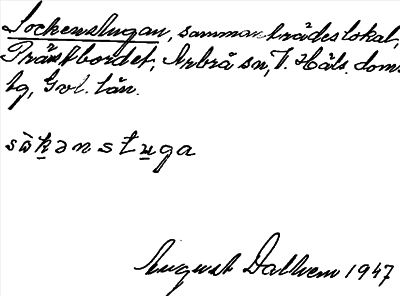 Sockenstugan, sammanträdeslokal,
Prästbordet, Arbrå sn, V. Häls. doms.
tg, Gvl. län.
sɷ̀k̠ənstu̠ga
August Dalhem 1947